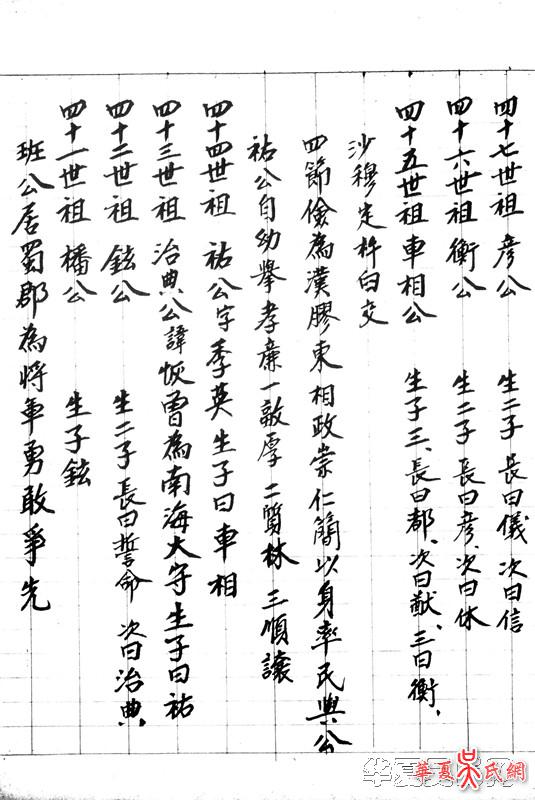 班公居蜀郡為將軍勇敢爭先
四十一世祖 橎公 生子鉉
四十二世祖 鉉公 生二子長曰誓命 次曰治典、
四十三世祖 治典公諱恢曾為南海大守生子曰祐
四十四世祖 祐公字季英生子曰車相
祐公自幼舉孝廉一敦厚二質林三順讓
四節儉為漢膠東相政崇仁簡以身率民與公
沙穆定杵臼交
四十五世祖車相公 生子三、長曰都、次曰猷、三曰衡、
四十六世祖衡公 生二子長曰彦、次曰休
四十七世祖彦公 生二子長曰儀次曰信
華夏吳氏網